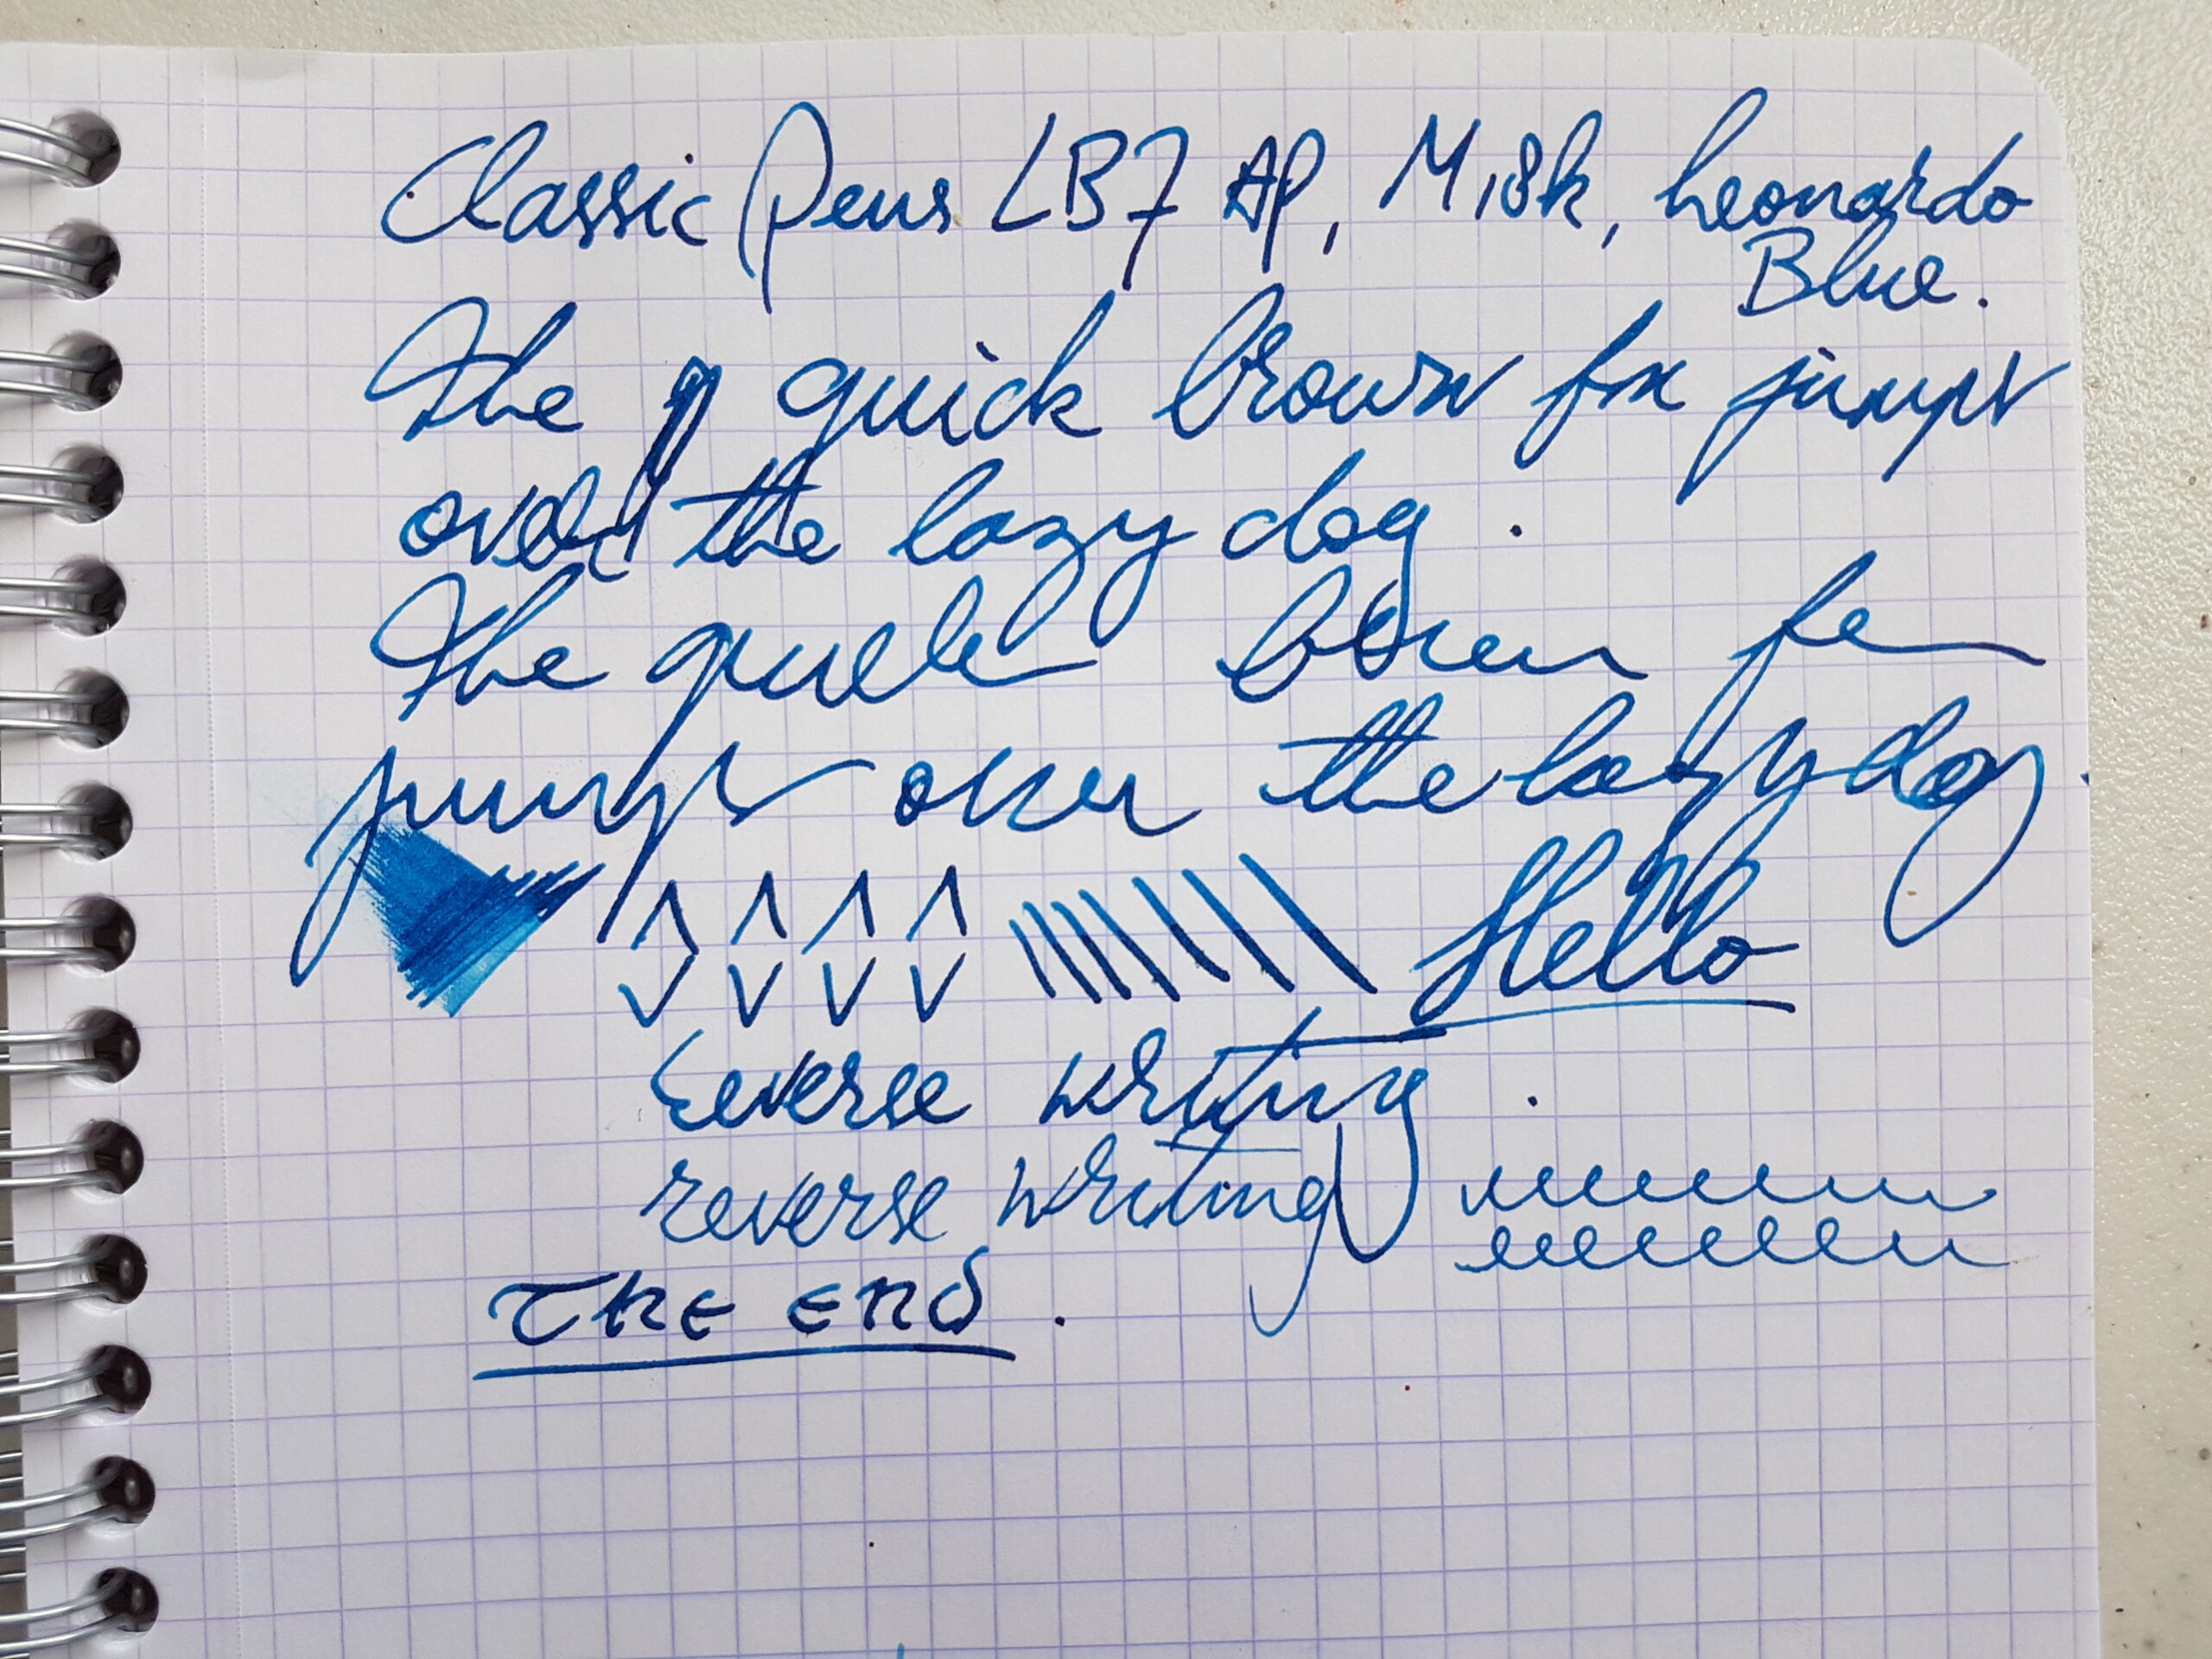 Classic Pens LB7 AP, M 18k, Leonardo
Blue.
The quick brown fox jumps
over the lazy dog.
The quick brown fox
jumps over the lazy dog.
Hello
reverse writing.
reverse writing
THE END.